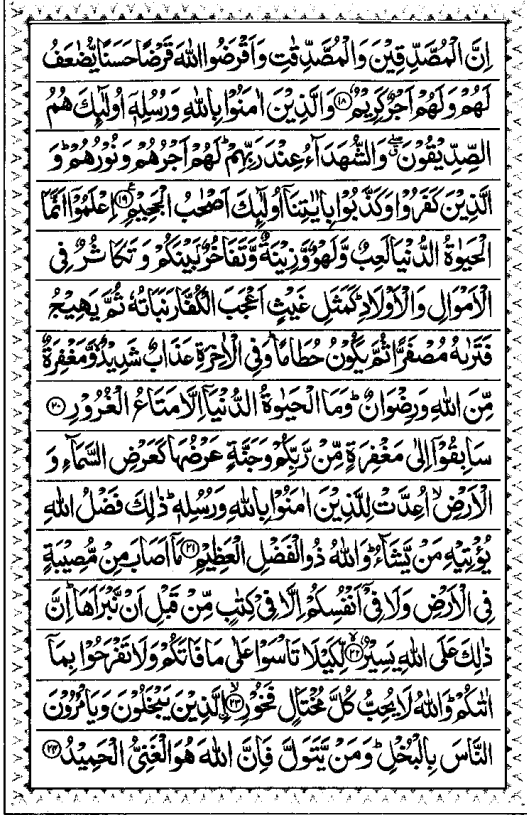 اِنَّ الْمُصَّدِّقِيْنَ وَالْمُصَّدِّقٰتِ وَاَقْرَضُوا اللّٰهَ قَرْضًا حَسَنًا يُّضٰعَفُ
لَهُمْ وَلَهُمْ اَجْرٌ كَرِيْمٌ ﴿۱۸﴾ وَالَّذِيْنَ اٰمَنُوْا بِاللّٰهِ وَرُسُلِهٖۤ اُولٰٓئِكَ هُمُ
الصِّدِّيْقُوْنَ ۖ وَالشُّهَدَآءُ عِنْدَ رَبِّهِمْ ؕ لَهُمْ اَجْرُهُمْ وَنُوْرُهُمْ ؕ وَ
الَّذِيْنَ كَفَرُوْا وَكَذَّبُوْا بِاٰيٰتِنَاۤ اُولٰٓئِكَ اَصْحٰبُ الْجَحِيْمِ ﴿۱۹﴾ اِعْلَمُوْۤا اَنَّمَا
الْحَيٰوةُ الدُّنْيَا لَعِبٌ وَّلَهْوٌ وَّزِيْنَةٌ وَّتَفَاخُرٌۢ بَيْنَكُمْ وَتَكَاثُرٌ فِى
الْاَمْوَالِ وَالْاَوْلَادِ ؕ كَمَثَلِ غَيْثٍ اَعْجَبَ الْكُفَّارَ نَبَاتُهٗ ثُمَّ يَهِيْجُ
فَتَرٰىهُ مُصْفَرًّا ثُمَّ يَكُوْنُ حُطَامًا ؕ وَفِى الْاٰخِرَةِ عَذَابٌ شَدِيْدٌ ۙ وَّمَغْفِرَةٌ
مِّنَ اللّٰهِ وَرِضْوَانٌ ؕ وَمَا الْحَيٰوةُ الدُّنْيَاۤ اِلَّا مَتَاعُ الْغُرُوْرِ ﴿۲۰﴾
سَابِقُوْۤا اِلٰى مَغْفِرَةٍ مِّنْ رَّبِّكُمْ وَجَنَّةٍ عَرْضُهَا كَعَرْضِ السَّمَآءِ وَ
الْاَرْضِ ۙ اُعِدَّتْ لِلَّذِيْنَ اٰمَنُوْا بِاللّٰهِ وَرُسُلِهٖ ؕ ذٰلِكَ فَضْلُ اللّٰهِ
يُؤْتِيْهِ مَنْ يَّشَآءُ ؕ وَاللّٰهُ ذُو الْفَضْلِ الْعَظِيْمِ ﴿۲۱﴾ مَاۤ اَصَابَ مِنْ مُّصِيْبَةٍ
فِى الْاَرْضِ وَلَا فِىْۤ اَنْفُسِكُمْ اِلَّا فِىْ كِتٰبٍ مِّنْ قَبْلِ اَنْ نَّبْرَاَهَا ؕ اِنَّ
ذٰلِكَ عَلَى اللّٰهِ يَسِيْرٌ ﴿۲۲﴾ لِّكَيْلَا تَاْسَوْا عَلٰى مَا فَاتَكُمْ وَلَا تَفْرَحُوْا بِمَاۤ
اٰتٰىكُمْ ؕ وَاللّٰهُ لَا يُحِبُّ كُلَّ مُخْتَالٍ فَخُوْرِ ﴿۲۳﴾ اِۨلَّذِيْنَ يَبْخَلُوْنَ وَيَاْمُرُوْنَ
النَّاسَ بِالْبُخْلِ ؕ وَمَنْ يَّتَوَلَّ فَاِنَّ اللّٰهَ هُوَ الْغَنِىُّ الْحَمِيْدُ ﴿۲۴﴾